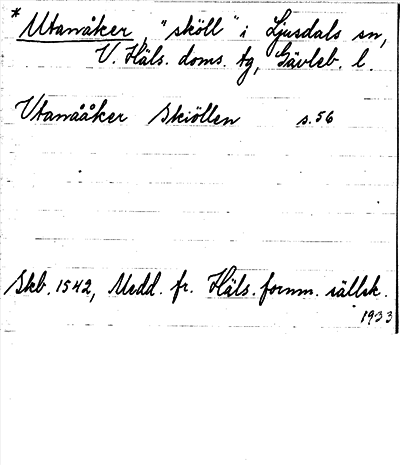 * Utanåker, "sköll" i Ljusdals sn,
V. Häls. doms. tg, Gävleb. l.
Utanrååker Skiöllen s. 56
Skb. 1542, Medd. fr. Häls. fornm. sällsk.
1933